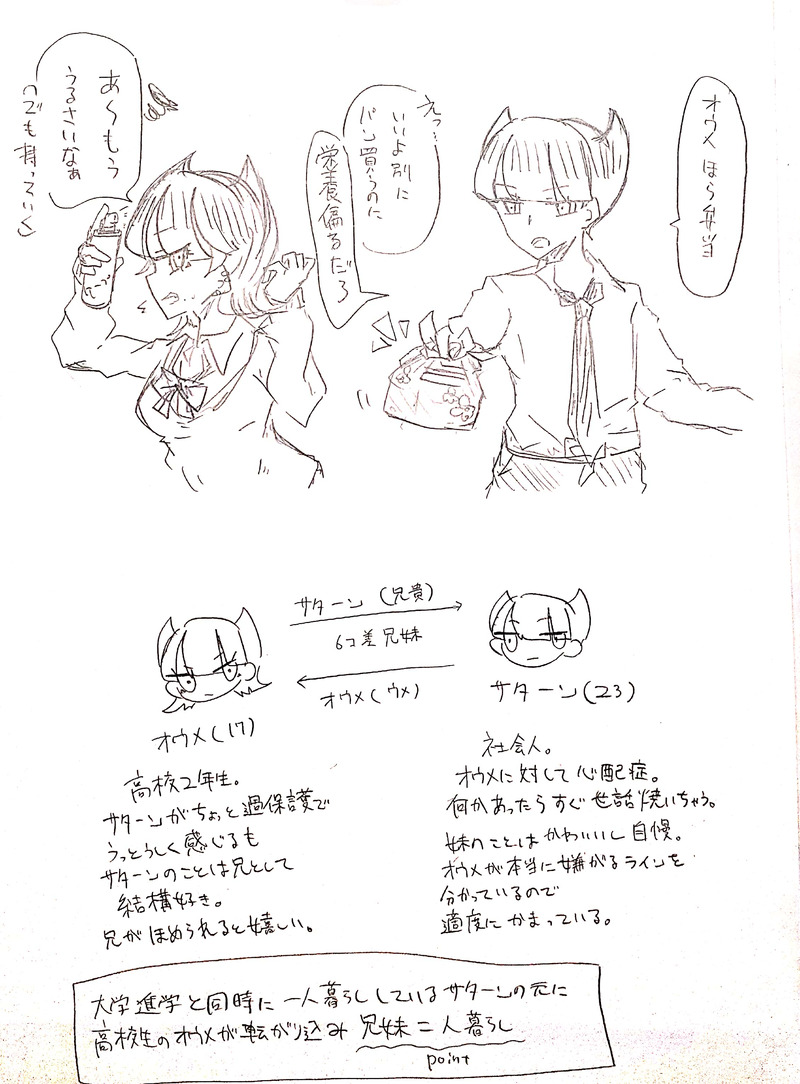 オウメ ほら 弁当
えっ…
いいよ別に
パン買うのに
栄養偏るだろ
あ〜もう
うるさいなぁ
(でも持っていく)
サターン (兄貴)
6コ差兄妹
オウメ(ウメ)
オウメ(17)
高校2年生。
サターンがちょっと過保護で
うっとうしく感じるも
サターンのことは兄として
結構好き。
兄がほめられると嬉しい。
サターン(23)
社会人。
オウメに対して心配症。
何かあったらすぐ世話焼いちゃう。
妹のことはかわいいし自慢。
オウメが本当に嫌がるラインを
分かっているので
適度にかまっている。
大学進学と同時に一人暮らししているサターンの元に
高校生のオウメが転がり込み 兄妹二人暮らし
point